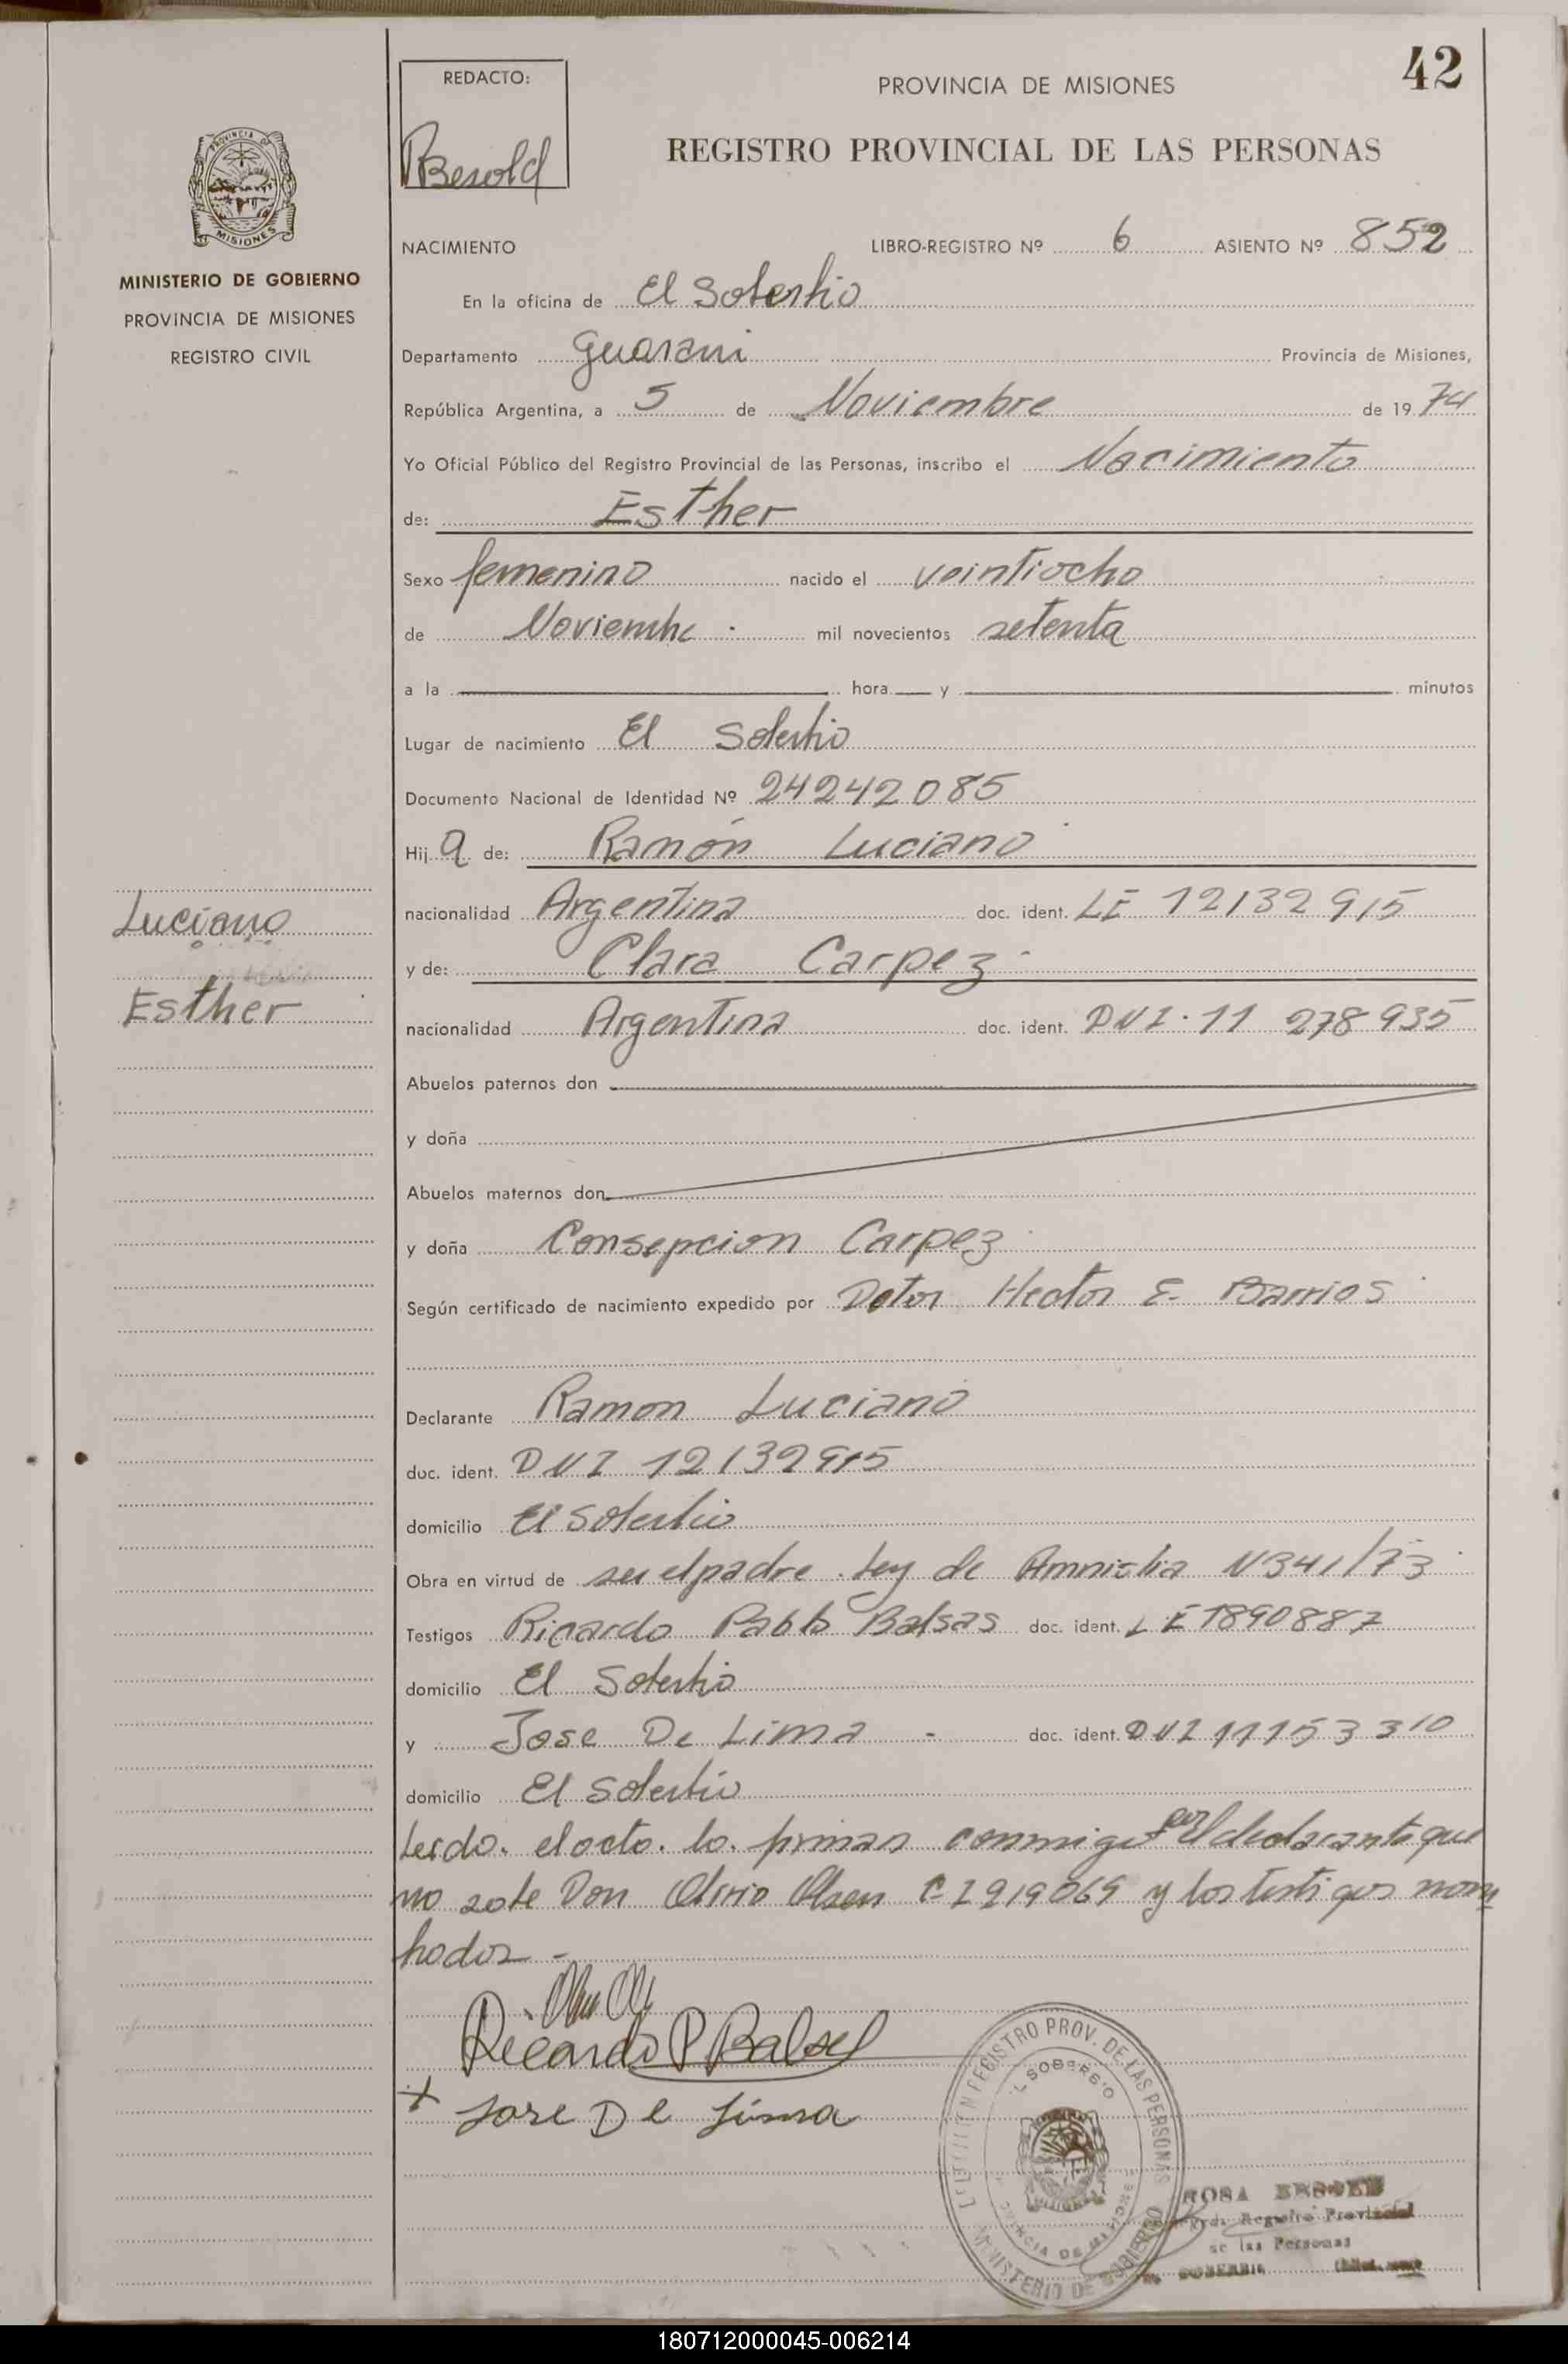 42
REDACTO:
Besold
PROVINCIA DE MISIONES
REGISTRO PROVINCIAL DE LAS PERSONAS
PROVINCIA
MISIONES
MINISTERIO DE GOBIERNO
PROVINCIA DE MISIONES
REGISTRO CIVIL
NACIMIENTO LIBRO-REGISTRO Nº 6 ASIENTO Nº 852
En la oficina de El Soberbio
Departamento Guarani Provincia de Misiones,
República Argentina, a 5 de Noviembre de 1974
Yo Oficial Público del Registro Provincial de las Personas, inscribo el Nacimiento
de: Esther
Sexo femenino nacido el veintiocho
de Noviembre mil novecientos setenta
a la hora y minutos
Lugar de nacimiento El Soberbio
Documento Nacional de Identidad Nº 24242085
Hija de: Ramón Luciano
Luciano
nacionalidad Argentina doc. ident. LE 12132915
y de: Clara Carpez
Esther
nacionalidad Argentina doc. ident. DNI. 11 278 935
Abuelos paternos don
y doña
Abuelos maternos don
y doña Consepcion Carpez
Según certificado de nacimiento expedido por Dotor Hector E. Barrios
Declarante Ramon Luciano
doc. ident. DNI 12132915
domicilio El Soberbio
Obra en virtud de ser el padre. Ley de Amnistia N341/73
Testigos Ricardo Pablo Balsas doc. ident. LE 7890887
domicilio El Soberbio
y Jose De Lima - doc. ident. DNI 11153310
domicilio El Soberbio
Leido. el acto. lo. firman conmigo por el declarante que
no sabe Don Olsen C I 919069 y los testigos nom
brados -
Ricardo P Balsas
+ Jose De Lima
REGISTRO PROV. DE LAS PERSONAS
SOBERBIO
PROVINCIA DE MISIONES
MINISTERIO DE GOBIERNO
ROSA
Registro Provincial
de las Personas
SOBERBIO
180712000045-006214